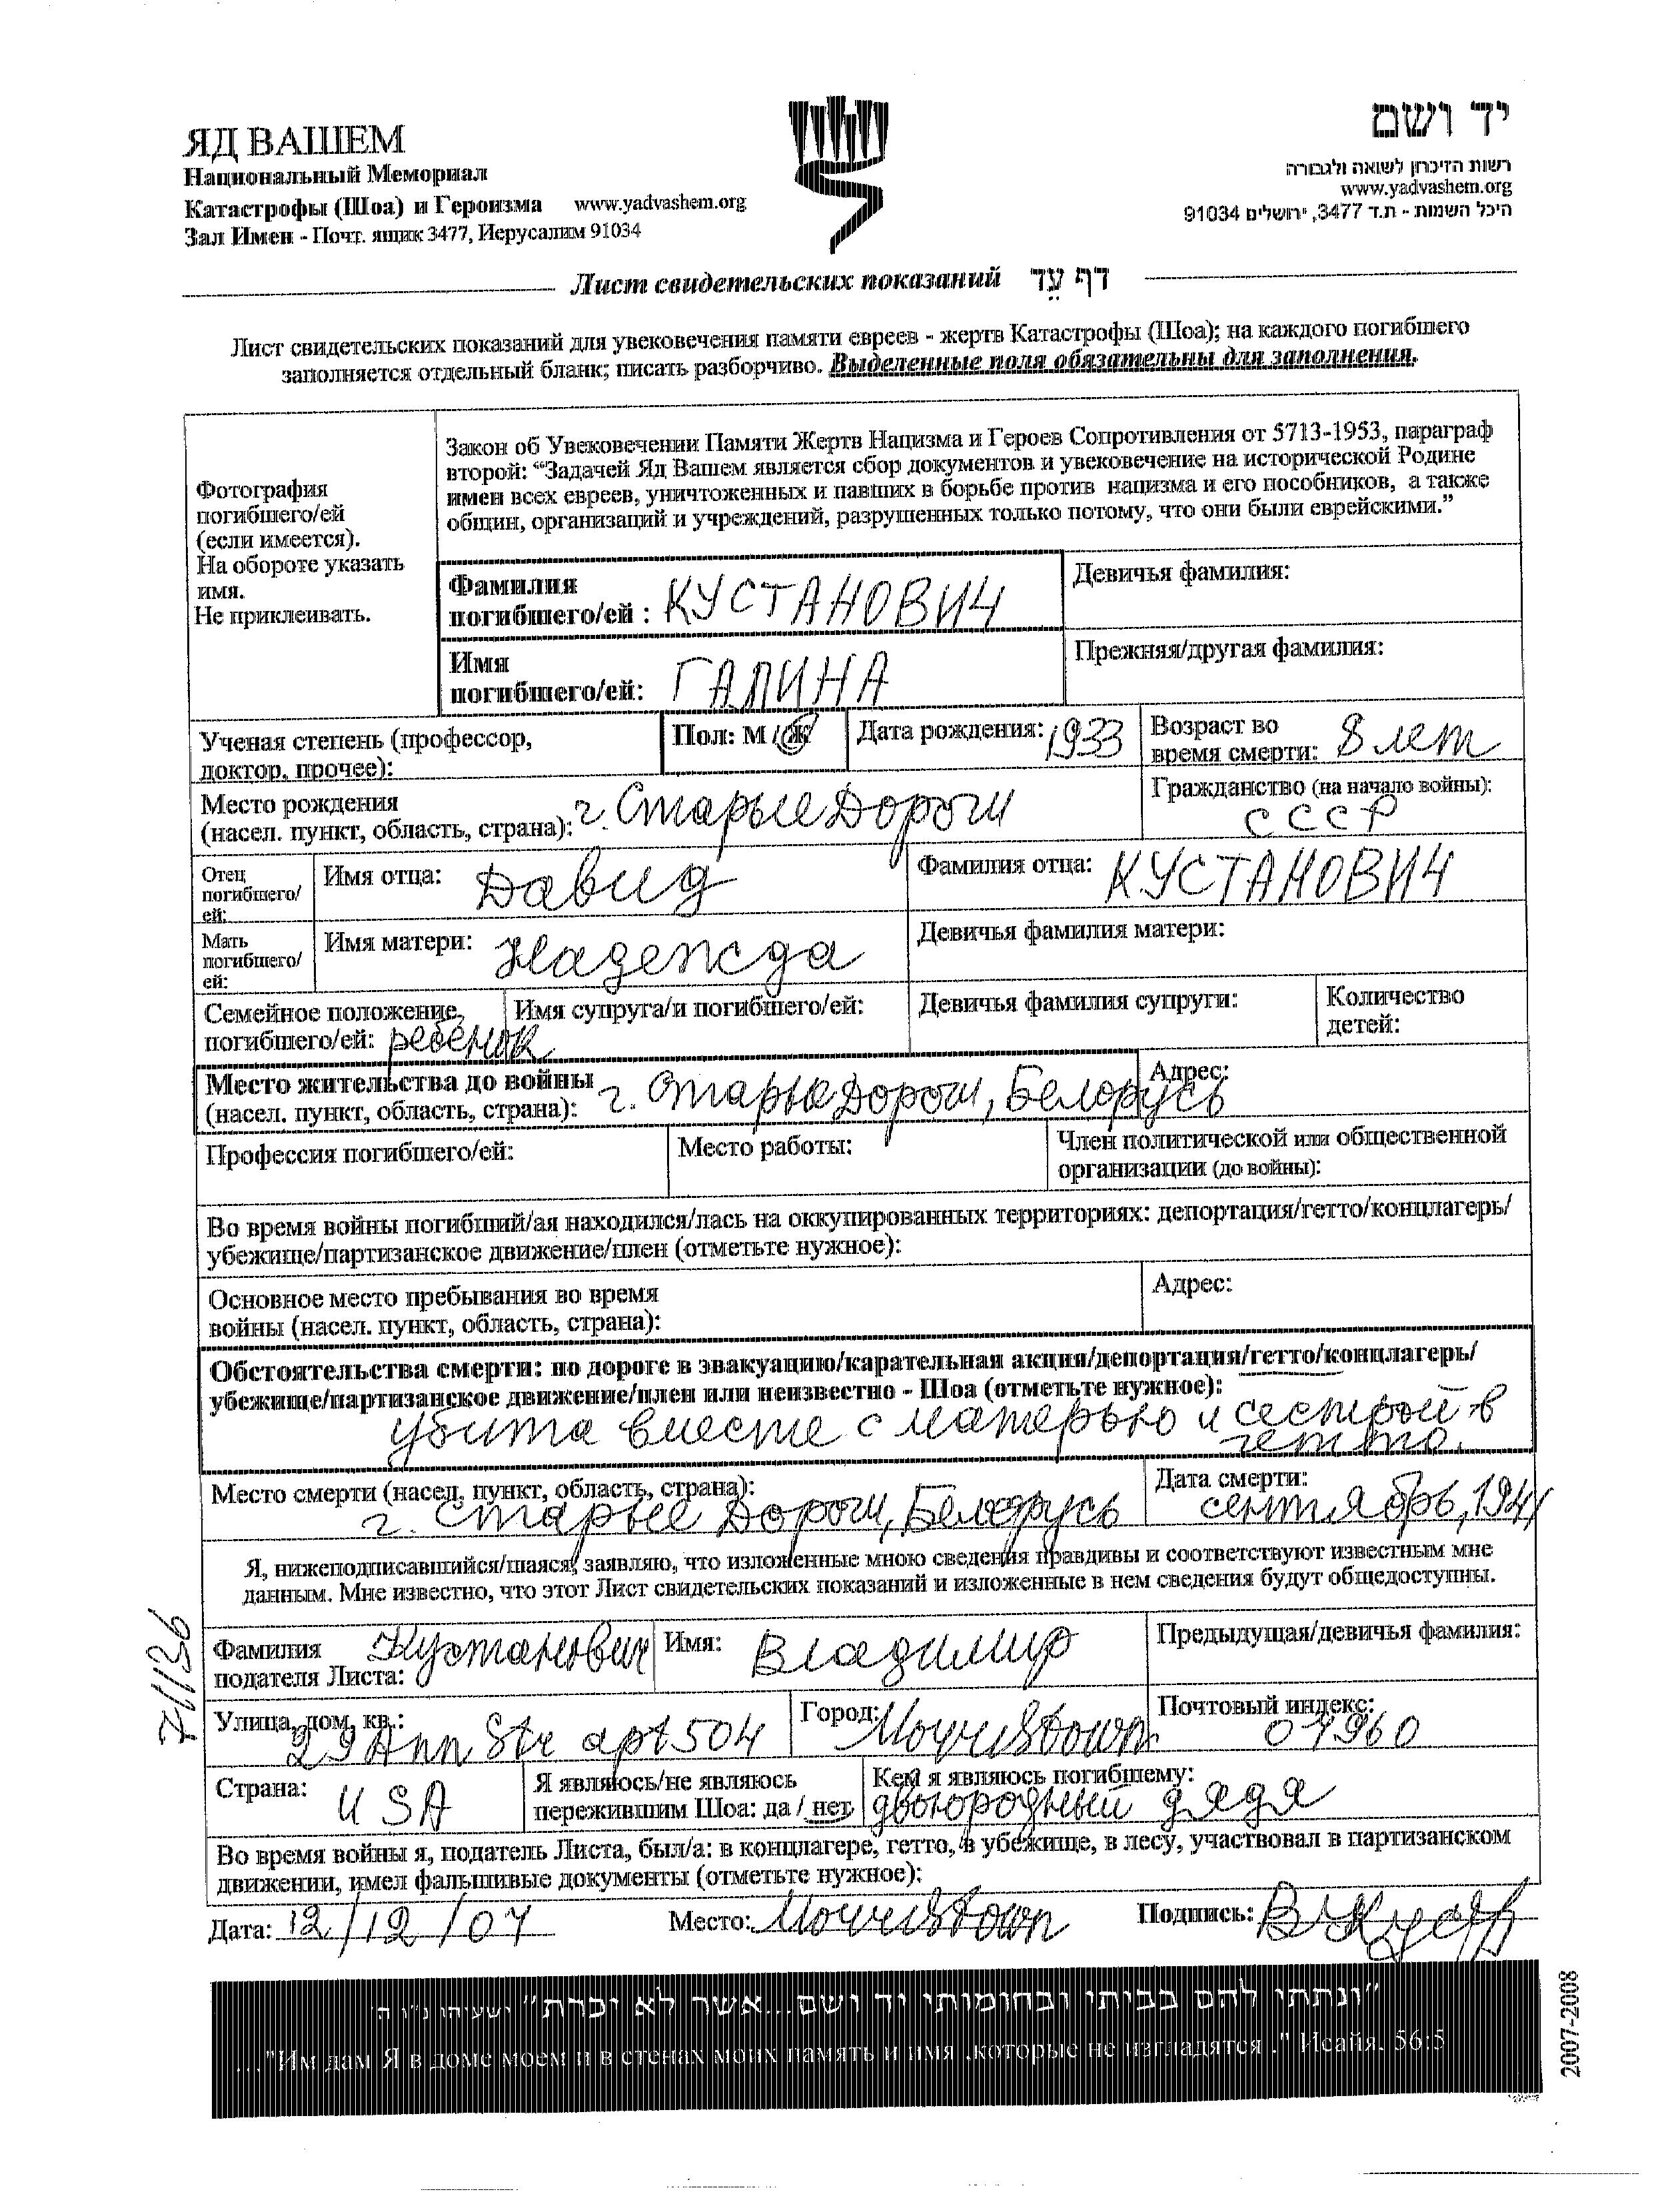 ЯД ВАШЕМ
Национальный Мемориал
Катастрофы (Шоа) и Героизма www.yadvashem.org
Зал Имен - Почт. ящик 3477, Иерусалим 91034
יד ושם
רשות הזיכרון לשואה ולגבורה
www.yadvashem.org
היכל השמות - ת.ד 3477, ירושלים 91034
Лист свидетельских показаний דף עֵד
Лист свидетельских показаний для увековечения памяти евреев - жертв Катастрофы (Шоа); на каждого погибшего
заполняется отдельный бланк; писать разборчиво. Выделенные поля обязательны для заполнения.
Фотография
погибшего/ей
(если имеется).
На обороте указать
имя.
Не приклеивать.
Закон об Увековечении Памяти Жертв Нацизма и Героев Сопротивления от 5713-1953, параграф
второй: “Задачей Яд Вашем является сбор документов и увековечение на исторической Родине
имен всех евреев, уничтоженных и павших в борьбе против нацизма и его пособников, а также
общин, организаций и учреждений, разрушенных только потому, что они были еврейскими.”
Фамилия
погибшего/ей : КУСТАНОВИЧ
Девичья фамилия:
Имя
погибшего/ей: ГАЛИНА
Прежняя/другая фамилия:
Ученая степень (профессор,
доктор, прочее):
Пол: М / Ж
Дата рождения: 1933
Возраст во
время смерти: 8 лет
Место рождения
(насел. пункт, область, страна): г. Старые Дороги
Гражданство (на начало войны):
СССР
Отец
погибшего/
ей:
Имя отца: Давид
Фамилия отца: КУСТАНОВИЧ
Мать
погибшего/
ей:
Имя матери: Надежда
Девичья фамилия матери:
Семейное положение
погибшего/ей: ребенок
Имя супруга/и погибшего/ей:
Девичья фамилия супруги:
Количество
детей:
Место жительства до войны
(насел. пункт, область, страна): г. Старые Дороги, Белорусь
Адрес:
Профессия погибшего/ей:
Место работы:
Член политической или общественной
организации (до войны):
Во время войны погибший/ая находился/лась на оккупированных территориях: депортация/гетто/концлагерь/
убежище/партизанское движение/плен (отметьте нужное):
Основное место пребывания во время
войны (насел. пункт, область, страна):
Адрес:
Обстоятельства смерти: по дороге в эвакуацию/карательная акция/депортация/гетто/концлагерь/
убежище/партизанское движение/плен или неизвестно - Шоа (отметьте нужное):
убита вместе с матерью и сестрой в
гетто.
Место смерти (насел. пункт, область, страна):
г. Старые Дороги, Белорусь
Дата смерти:
сентябрь, 1941
Я, нижеподписавшийся/шаяся, заявляю, что изложенные мною сведения правдивы и соответствуют известным мне
данным. Мне известно, что этот Лист свидетельских показаний и изложенные в нем сведения будут общедоступны.
71136
Фамилия
подателя Листа: Кустанович
Имя: Владимир
Предыдущая/девичья фамилия:
Улица, дом, кв.:
29 Ann Str apt 504
Город: Morristown
Почтовый индекс:
07960
Страна: USA
Я являюсь/не являюсь
пережившим Шоа: да / нет
Кем я являюсь погибшему:
двоюродный дядя
Во время войны я, податель Листа, был/а: в концлагере, гетто, в убежище, в лесу, участвовал в партизанском
движении, имел фальшивые документы (отметьте нужное):
Дата: 12/12/07
Место: Morristown
Подпись:
"ונתתי להם בביתי ובחומותי יד ושם...אשר לא יכרת" ישעיהו נ"ו ה'
..."Им дам Я в доме моем и в стенах моих память и имя ,которые не изгладятся ." Исайя. 56:5
2007-2008